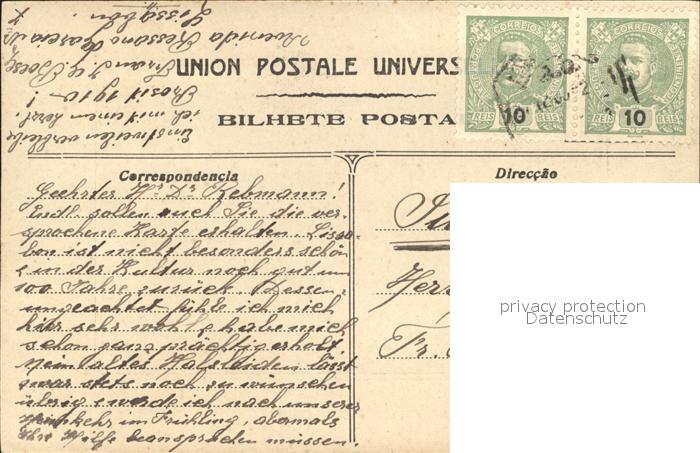 UNION POSTALE UNIVERS
BILHETE POSTA
CORREIOS
CORREIOS
PORTUGAL
PORTUGAL
10
10
REIS REIS
REIS REIS
Correspondencia
Direcção
Geehrter Hr Dr Rebmann!
Endl. sollen auch Sie die ver-
sprochene Karte erhalten. Lissa-
bon ist nicht besonders schön
& in der Kultur noch gut um
100 Jahre zurück. Dessen-
ungeachtet fühle ich mich
hier sehr wohl & habe mich
schon ganz prächtig erholt.
Mein altes Halsleiden lässt
zwar stets noch zu wünschen
übrig & werde ich nach unserer
Heimkehr im Frühling, abermals
Ihre Hilfe beanspruchen müssen.
Einstweilen verbleibe
ich mit einem herzl.
Prosit 1910!
Avenida Ressano Garcia
Lissabon.
Fr.
privacy protection
Datenschutz